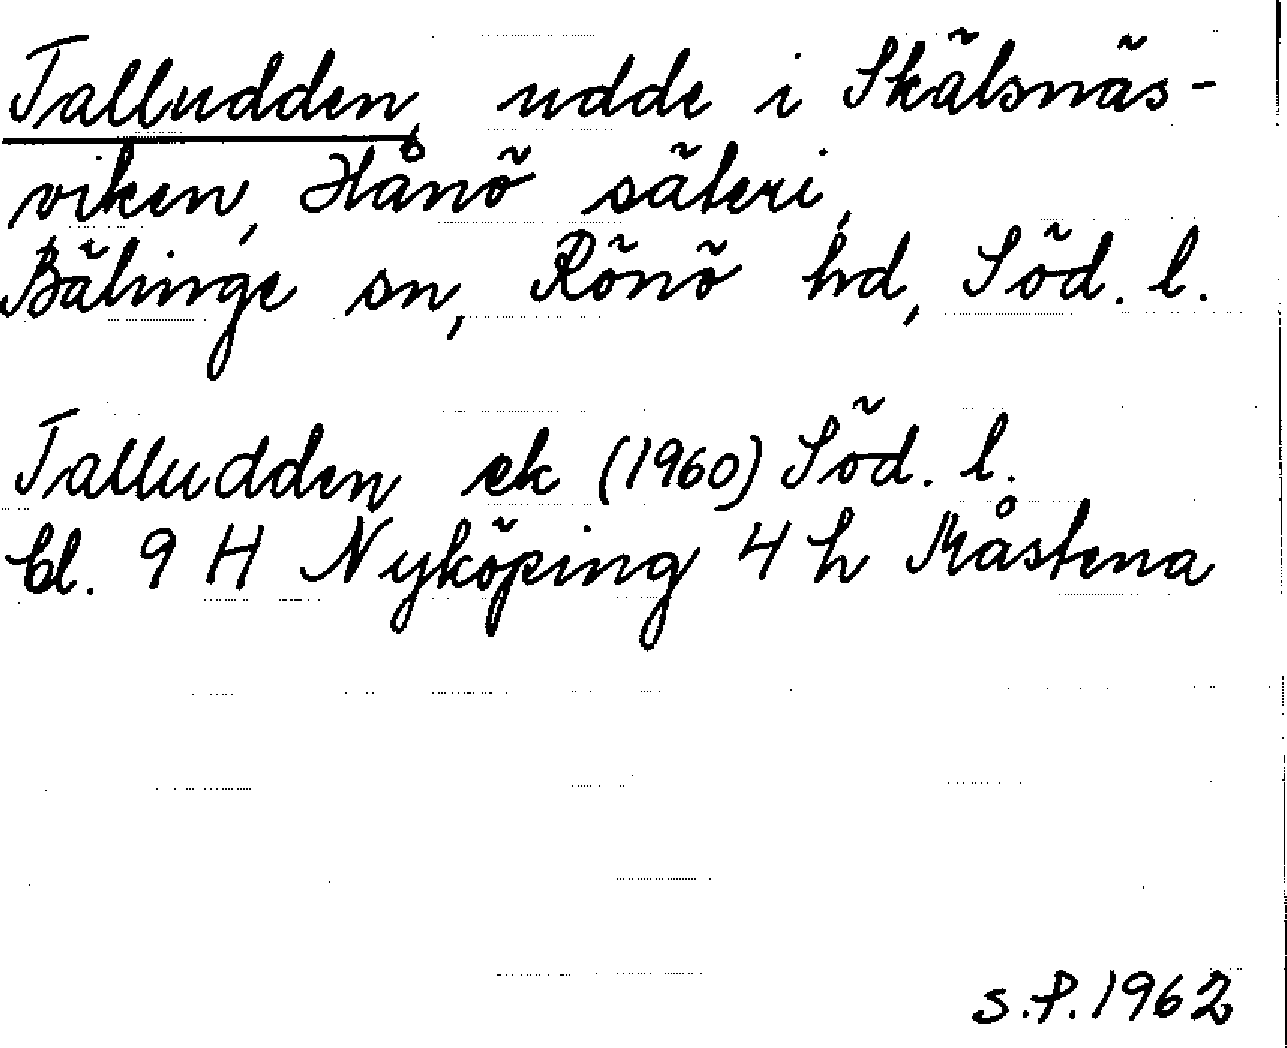 Talludden, udde i Skälsnäs-
viken, Hånö säteri,
Bälinge sn, Rönö hd, Söd. l.
Talludden ek (1960) Söd. l.
bl. 9 H Nyköping 4 h Måstena
S.P. 1962